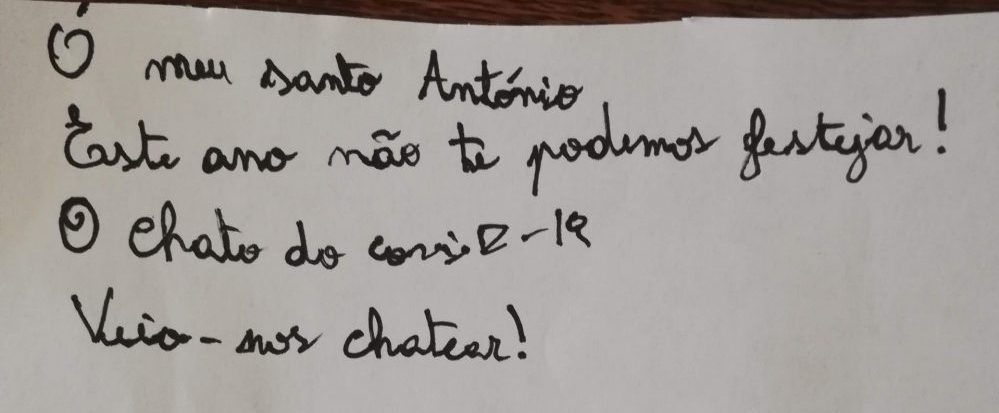 Ó meu santo António
Este ano não te podemos festejar!
O chato do covid-19
Veio-nos chatear!